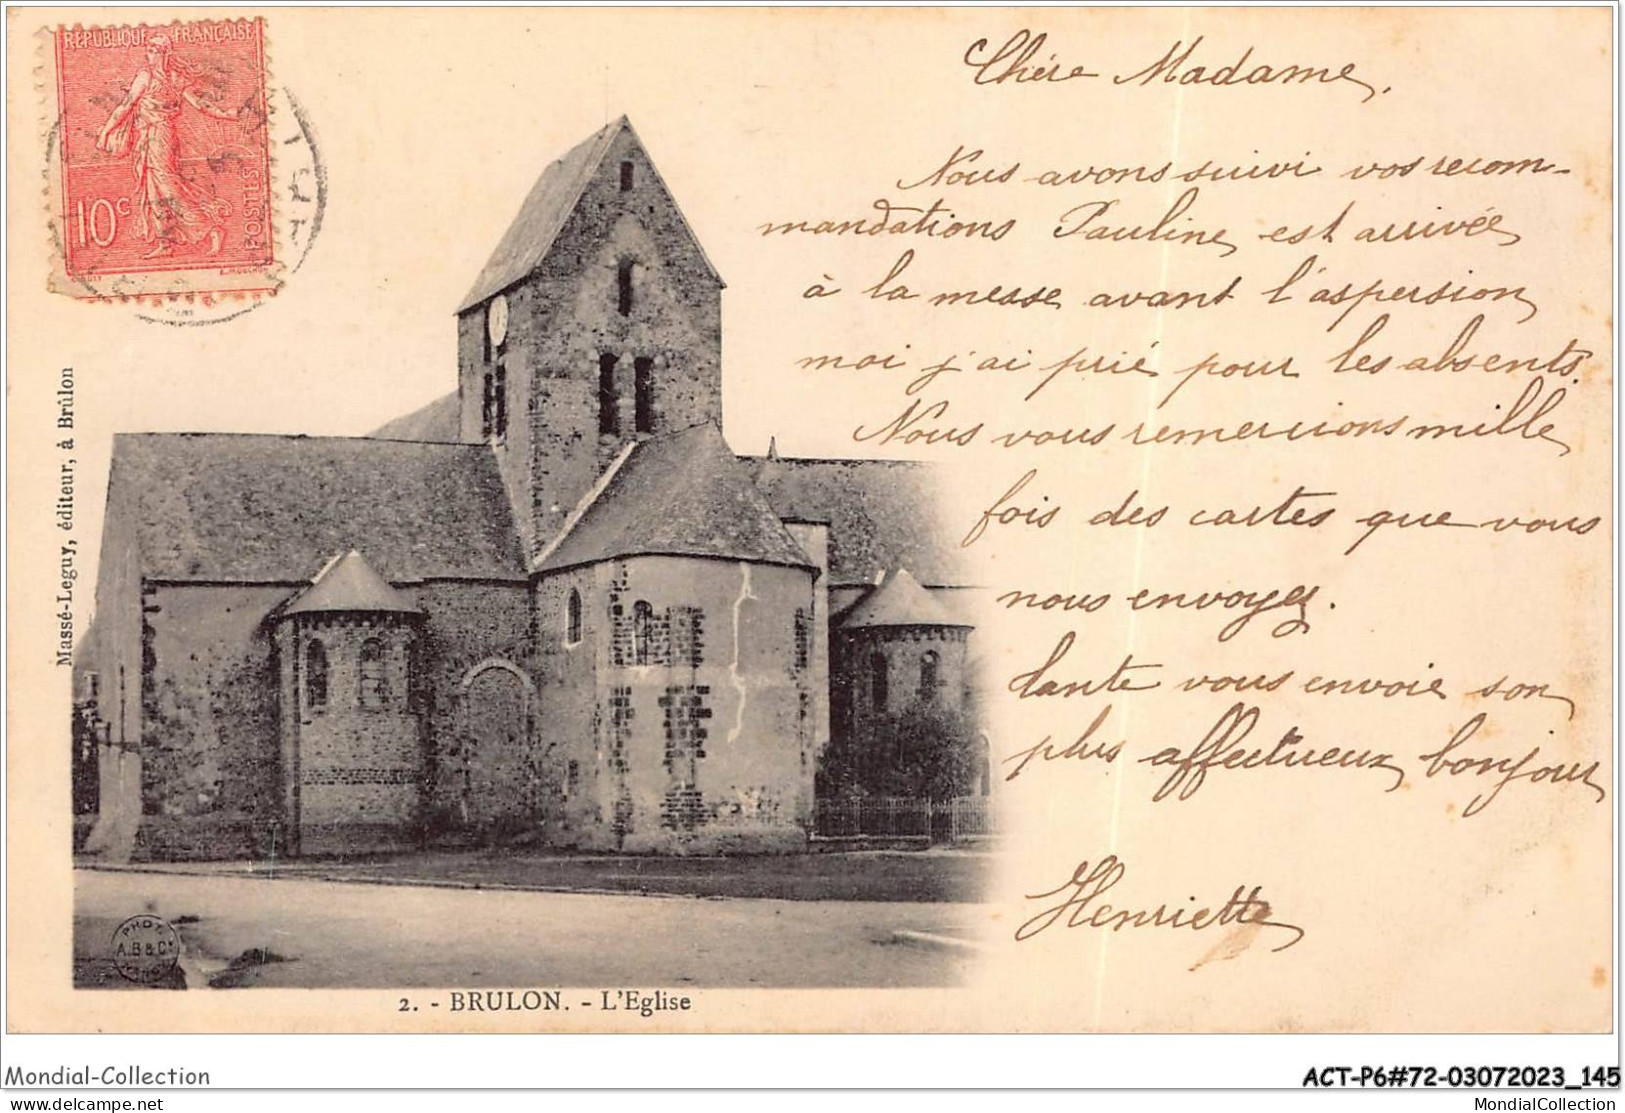 RÉPUBLIQUE FRANÇAISE
10c
POSTES
Chère Madame,
Nous avons suivi vos recom-
mandations Pauline est arrivée
à la messe avant l'aspersion
moi j'ai prié pour les absents.
Nous vous remercions mille
fois des cartes que vous
nous envoyez.
tante vous envoie son
plus affectueux bonjour
Henriette
Massé-Leguy, éditeur, à Brûlon
PHOT.
A.B & Cie
2. - BRULON. - L'Eglise
Mondial-Collection
ACT-P6#72-03072023_145
delcampe.net
MondialCollection